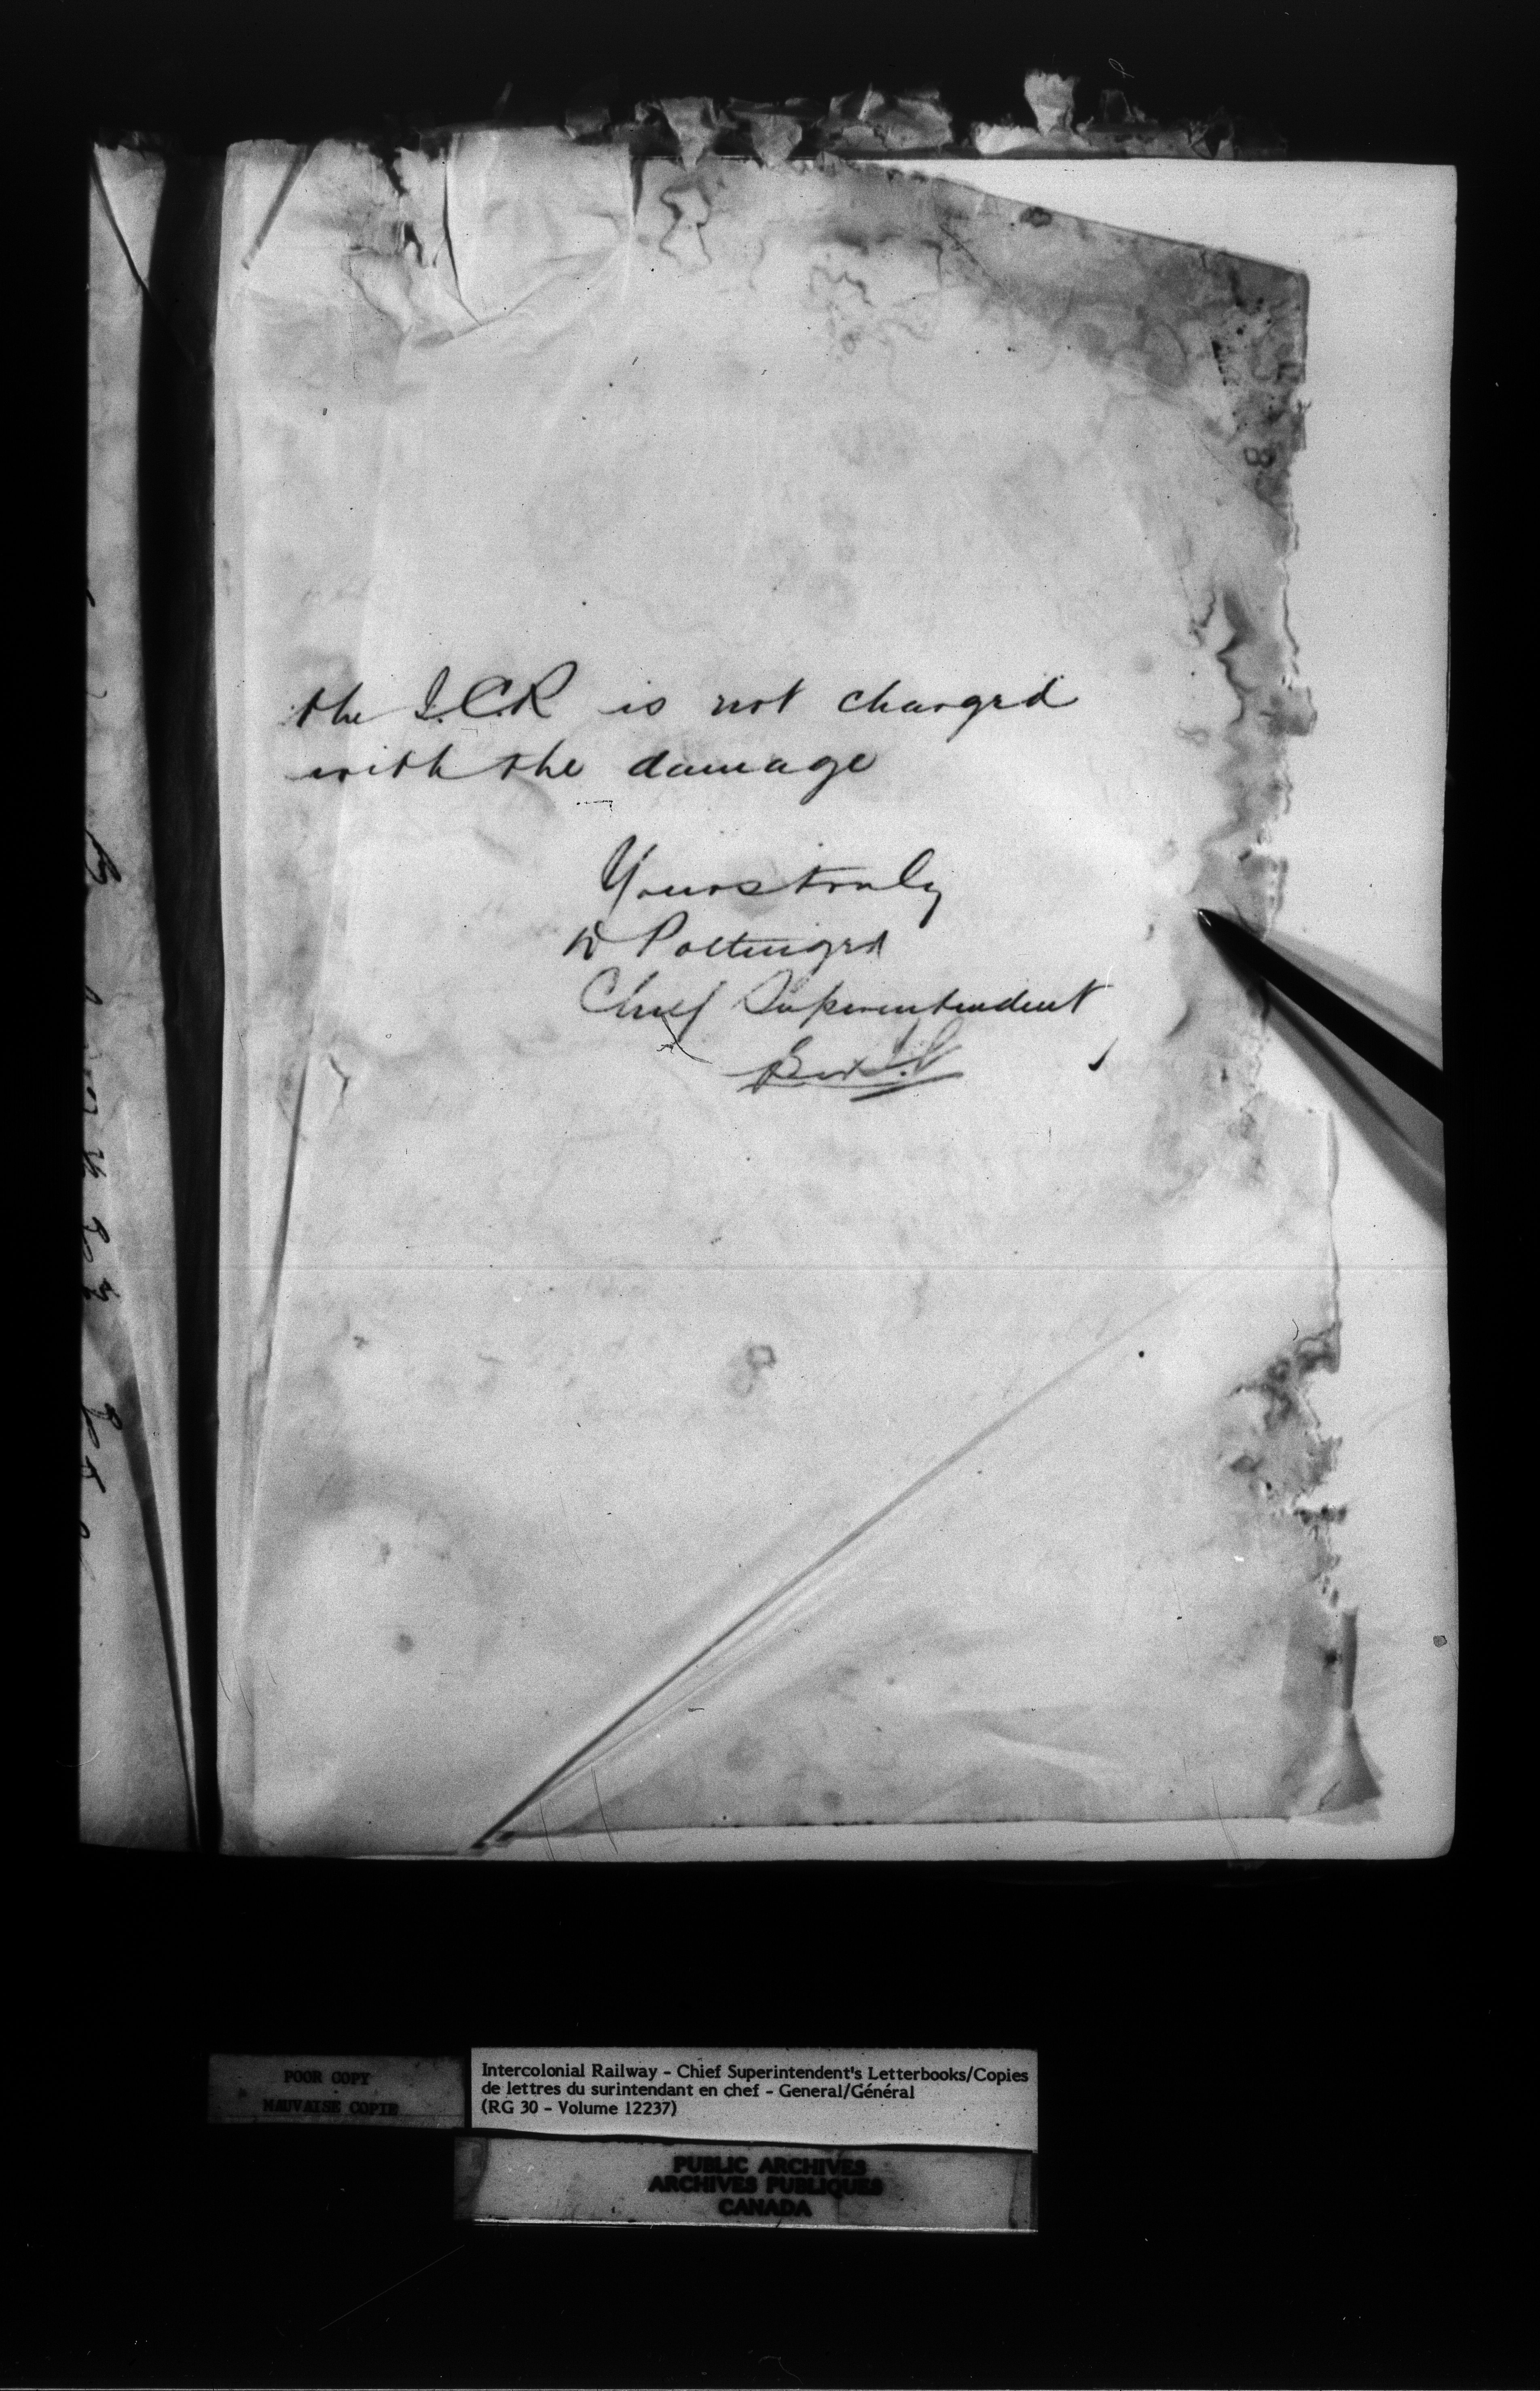 the I.C.R is not charged
with the damage
Yours truly
D Pottinger
Chief Superintendent
POOR COPY
MAUVAISE COPIE
Intercolonial Railway - Chief Superintendent's Letterbooks/Copies
de lettres du surintendant en chef - General/Général
(RG 30 - Volume 12237)
PUBLIC ARCHIVES
ARCHIVES PUBLIQUES
CANADA